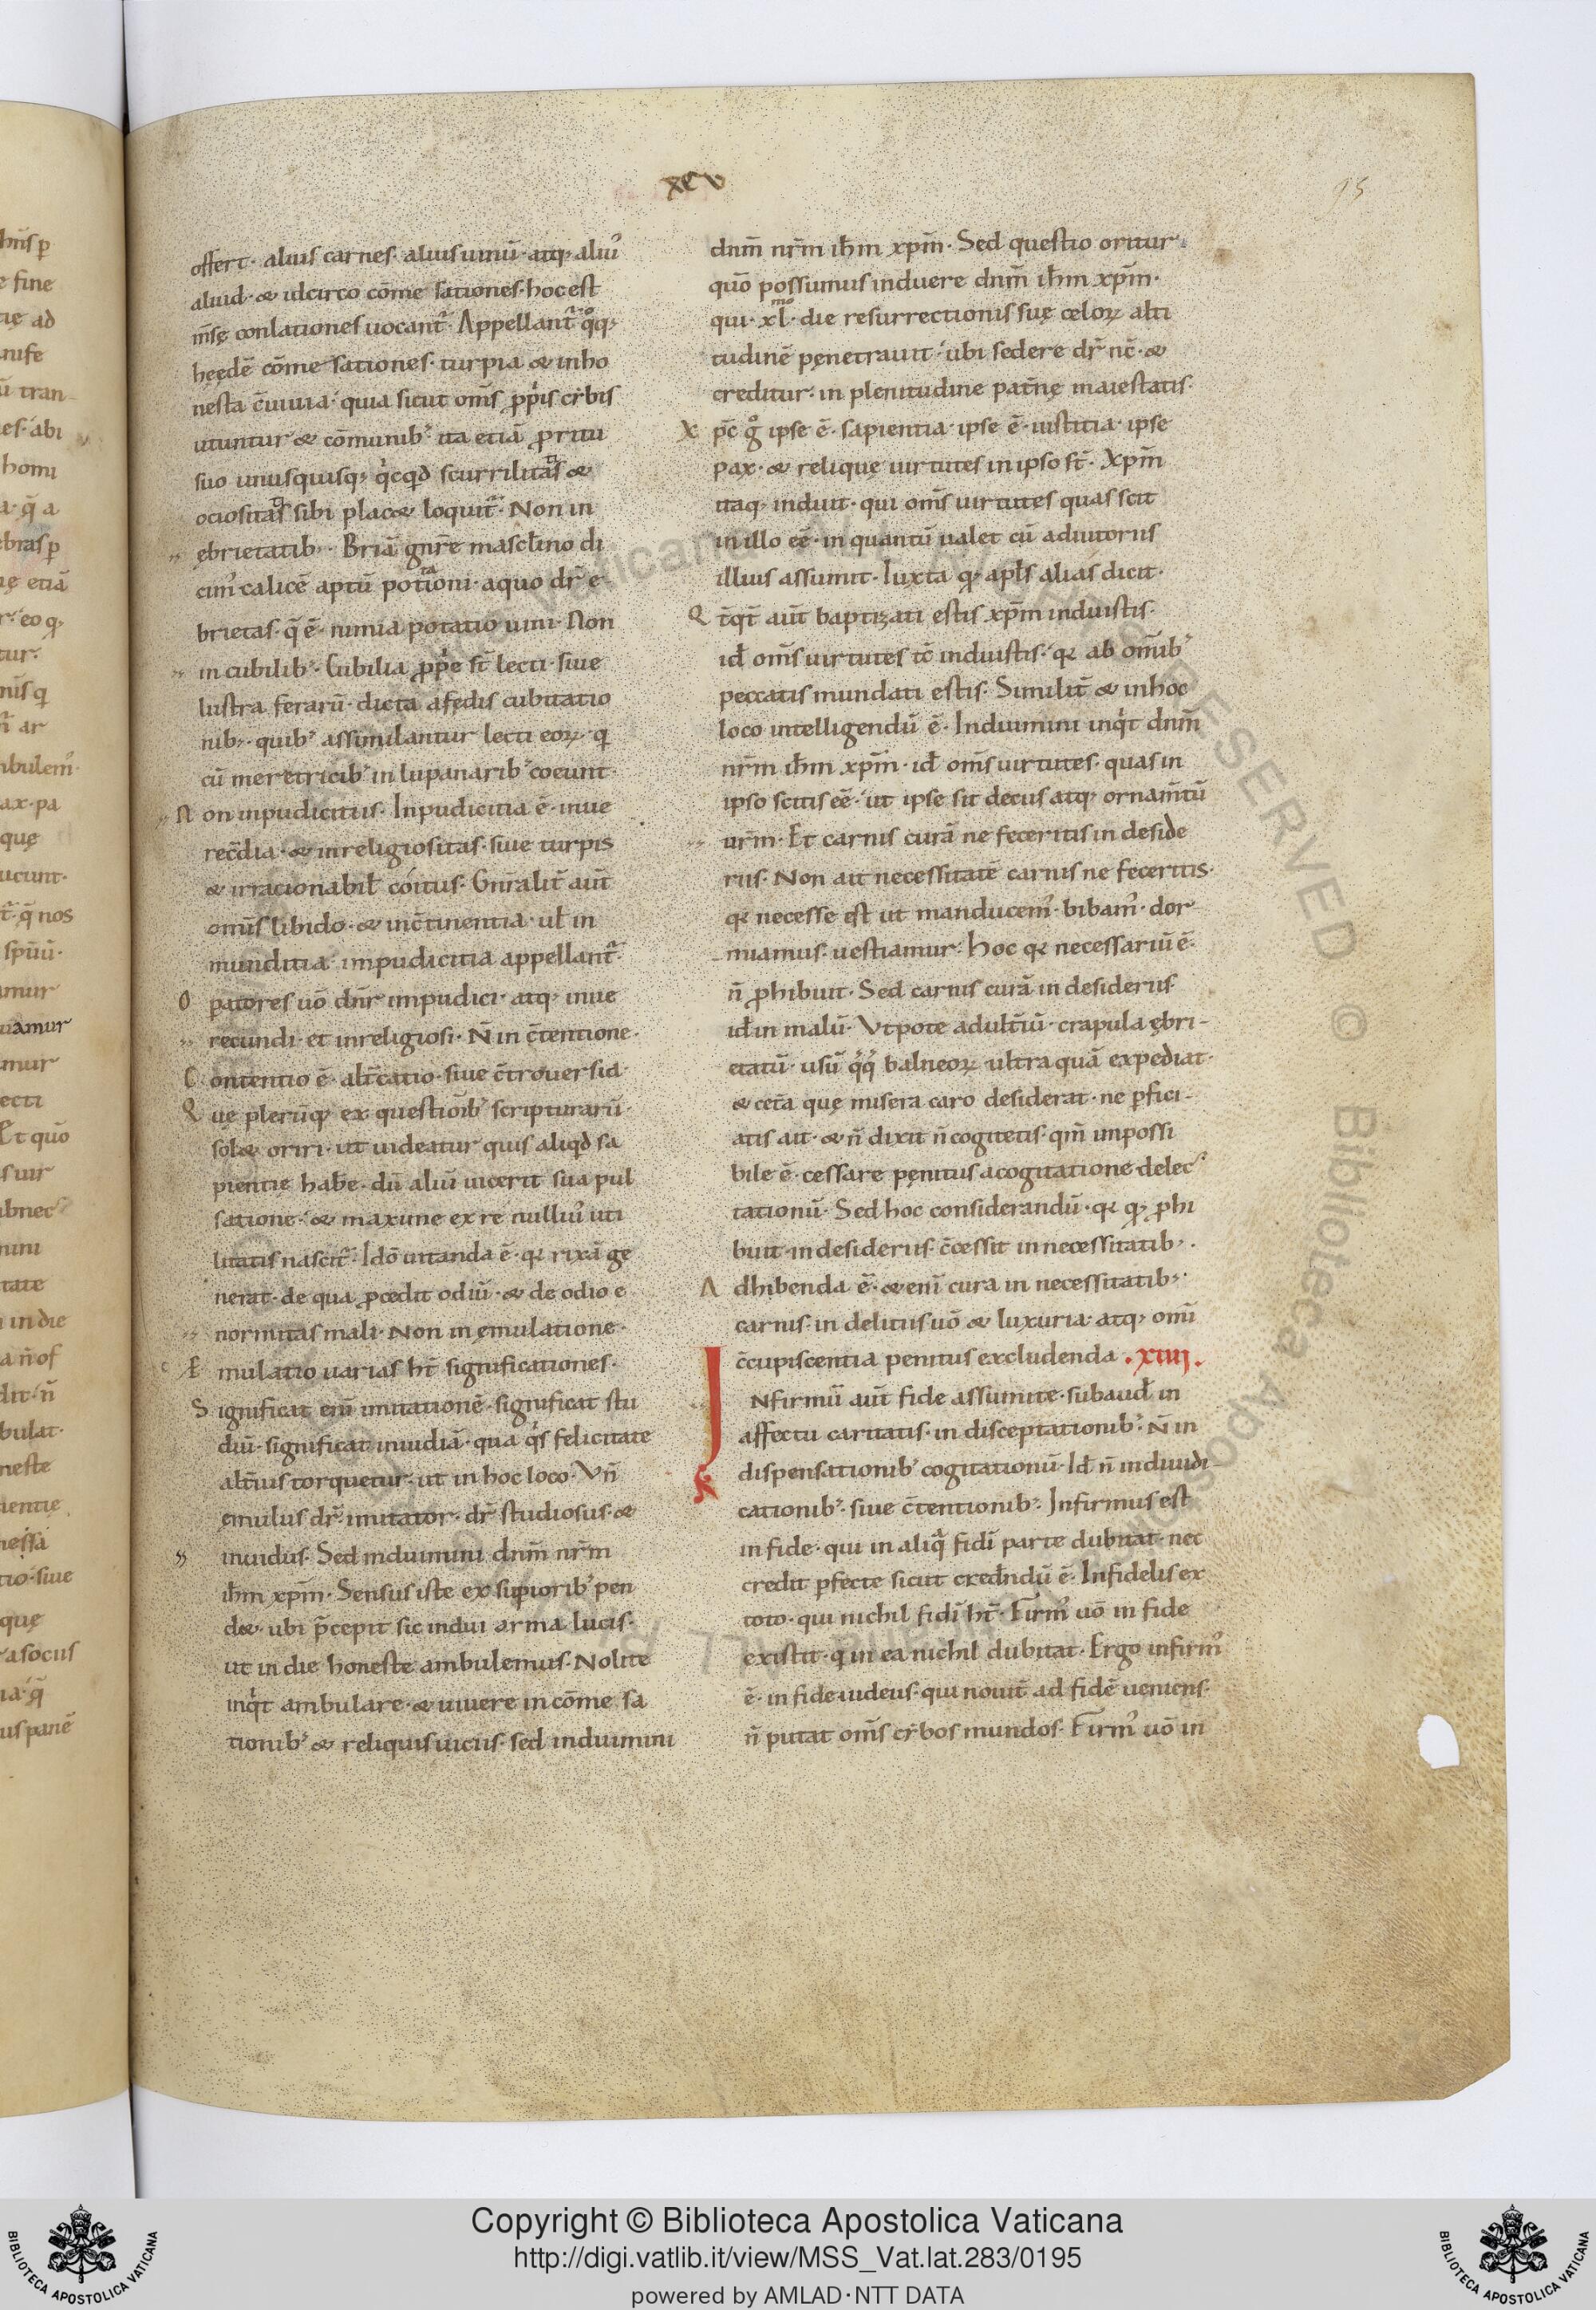 xcv
95
offert· alius carnes· alius uinū· atq; aliu᷒
aliud· & idcirco cōme sationes· hoc est
m̄sę conlationes uocant᷑· Appellant᷑ q̊q;
hęędē cōme sationes· turpia & inho
nesta c̄uiuia· quia sicut om̄s ꝓpiis cibis
utuntur & cōmunib; ita etiā ꝓ ritu
suo unusquisq; qicqd scurrilitas &
ociositas sibi plac& loquit᷑· Non in
ębrietatib;· Briā gn̄re masclino di
cim᷒ calicē aptū potioni· a quo dr̄ e
brietas· q̄ ē· nimia potatio uini· Non
in cubilib;· Cubilia ꝓp̄e st̄ lecti· siue
lustra ferarū· dicta a fędis cubitatio
nib;· quib; assimilantur lecti eoꝝ· q
cū meretricib; in lupanarib; coeunt·
Non inpudicitiis· Inpudicitia ē· inue
rec̄dia· & inreligiositas· siue turpis
& irrationabił cóitus· Gn̄ralit̄ aut̄
omīs libido· & inc̄tinentia· uł in
munditia· impudicitia appellant᷑·
O patores uō dn̄r impudici· atq; inue
recundi· et inreligiosi· N̄ in c̄tentione·
C ontentio ē· alt̄catio· siue c̄trouersia·
Q uę plerūq; ex questionib; scripturarū
sol& oriri· ut uideatur quis aliqd sa
pientie habe· dū aliū uicerit sua pul
satione· & maxime ex re nulliu᷒ uti
litatis nascit᷑· Idō uitanda ē· q̨ rixā ge
nerat· de qua ꝓcedit odiū· & de odio e
normitas mali· Non in ęmulatione·
Æ mulatio uarias ht̄ significationes·
S ignificat eni imitationē· significat stu
diū· significat inuidiā· qua qis felicitate
alt̄ius torquetur· ut in hoc loco· Vn̄
ęmulus dr̄· imitator· dr̄ studiosus· &
inuidus· Sed induimini dnm̄ nr̄m
ihm̄ xpm̄· Sensus iste ex supiorib; pen
d&· ubi p̄cepit sic indui arma lucis·
ut in die honeste ambulemus· Nolite
inqit ambulare· & uiuere in cōme sa
tionib; & reliquis uiciis· sed induimini
dnm̄ nr̄m ihm̄ xpm̄· Sed questio oritur·
quō possumus induere dnm̄ ihm̄ xpm̄·
qui· xl mo· die resurrectionis suę celoꝝ alti
tudinē pęnetrauit· ubi sedere dr̄ nc̄· &
creditur· in plenitudine patr̄nę maiestatis·
X pc̄ g̊ ipse ē· sapientia· ipse ē· iustitia· ipse
pax· & relique uirtutes in ipso st̄· Xpm̄
itaq· induit· qui om̄s uirtutes quas scit
in illo eē· in quantū ualet cū adiutoriis
illius assumit· Iuxta q; apłs alias dicit·
Q t̄qt̄ aut̄ baptizati estis xpm̄ induistis·
id̄ om̄s uirtutes tc̄ induistis· q̨ ab om̄ib;
peccatis mundati estis· Similit̄ & in hoc
loco intelligendū ē· Induimini inqit dnm̄
nr̄m ihm̄ xpm̄· id̄ om̄s uirtutes· quas in
ipso scitis eē· ut ipse sit decus atq; ornam̄tū
ur̄m· Et carnis curā ne feceritis in deside
riis· Non ait necessitatē carnis ne feceritis·
q̨ necesse est ut manducem᷒· bibam᷒· dor
miamus· uestiamur· Hoc q̨ necessariū ē·
n̄ ꝓhibuit· Sed carnis curā in desideriis·
id̄ in malū· Vtpote adult̄iū· crapula ębri-
etatū· usū qq balneoꝝ ultra quā expediat·
& cet̄a quę misera caro desiderat· ne ꝑfici-
atis ait· & n̄ dixit n̄ cogitetis· qm̄ impossi
bile ē· cessare pęnitus a cogitatione delec
tationū· Sed hoc considerandū· q̨ q; ꝓhi
buit in desideriis· c̄cessit in necessitatib;·
A dhibenda ē· &eni cura in necessitatib;·
carnis· in delitiis uō & luxuria· atq; omi
c̄cupiscentia penitus excludenda ·xiiii·
INfirmū aut̄ fide assumite· subaud̄ in
affectu caritatis· in disceptationib;· N̄ in
dispensationib; cogitationū· Id̄ n̄ in diiudi-
cationib;· siue c̄tentionib;· Infirmus est
in fide· qui in aliq fidi parte dubitat· nec
credit ꝑfecte sicut cred̄ndū ē· Infidelis ex
toto· qui nichil fidi ht̄· Firm᷒ uō in fide
existit· q in ea nichil dubitat· Ergo infirm᷒
ē· in fide iudeus· qui nouit̄ ad fidē ueniens·
n̄ putat om̄s cibos mundos· Firm᷒ uō in
Copyright © Biblioteca Apostolica Vaticana
http://digi.vatlib.it/view/MSS_Vat.lat.283/0195
powered by AMLAD·NTT DATA